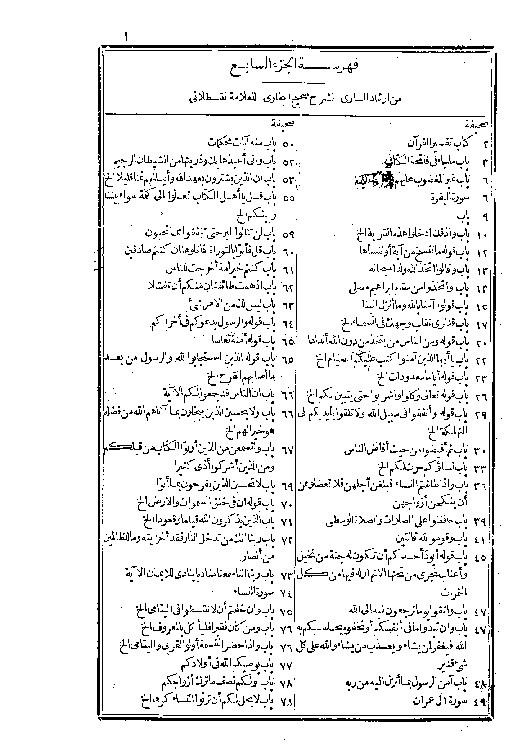 ١
فهرسة الجزء السابع
من ارشاد السارى شرح صحيح البخارى للعلامة القسطلانى
صحيفة
٢ كتاب تفسير القرآن
٣ باب ماجاء فى فاتحة الكتاب
٦ باب غير المغضوب عليهم
٦ سورة البقرة
٩ باب
١٠ باب واذ قلنا ادخلوا هذه القرية الخ
١٢ باب قوله ما ننسخ من آية أو ننسأها
١٢ باب وقالوا اتخذ الله ولدا سبحانه
١٣ باب واتخذوا من مقام ابراهيم مصلى
١٥ باب قولوا آمنا بالله وما أنزل الينا
١٧ باب قد نرى تقلب وجهك فى السماء الخ
٢٠ باب قوله ومن الناس من يتخذ من دون الله أندادا
٢٢ باب يا أيها الذين آمنوا كتب عليكم الصيام الخ
٢٣ باب قوله أياما معدودات الخ
٢٦ باب قوله تعالى وكلوا واشربوا حتى يتبين لكم الخ
٢٩ باب قوله وأنفقوا فى سبيل الله ولا تلقوا بأيديكم الى
التهلكة الخ
٣٠ باب ثم أفيضوا من حيث أفاض الناس
٣٣ باب نساؤكم حرث لكم الخ
٣٦ باب واذا طلقتم النساء فبلغن أجلهن فلا تعضلوهن
أن ينكحن أزواجهن
٣٩ باب حافظوا على الصلوات والصلاة الوسطى
٤١ باب وقوموا لله قانتين
٤٥ باب قوله أيود أحدكم أن تكون له جنة من نخيل
وأعناب تجرى من تحتها الانهار له فيها من كل
الثمرات
٤٧ باب واتقوا يوما ترجعون فيه الى الله
٤٧ باب وان تبدوا ما فى أنفسكم أو تخفوه يحاسبكم به
الله فيغفر لمن يشاء ويعذب من يشاء والله على كل
شئ قدير
٤٨ باب آمن الرسول بما أنزل اليه من ربه
٤٩ سورة آل عمران
صحيفة
٥٠ باب منه آيات محكمات
٥٢ باب وانى أعيذها بك وذريتها من الشيطان الرجيم
٥٣ باب ان الذين يشترون بعهد الله وأيمانهم ثمنا قليلا الخ
٥٥ باب قل يا أهل الكتاب تعالوا الى كلمة سواء بيننا
وبينكم الخ
٥٩ باب لن تنالوا البر حتى تنفقوا مما تحبون
٦٠ باب قل فأتوا بالتوراة فاتلوها ان كنتم صادقين
٦١ باب كنتم خير أمة أخرجت للناس
٦٢ باب اذ همت طائفتان منكم أن تفشلا
٦٣ باب ليس لك من الامر شئ
٦٤ باب قوله والرسول يدعوكم فى أخراكم
٦٥ باب قوله أمنة نعاسا
٦٥ باب قوله الذين استجابوا لله والرسول من بعد
ما أصابهم القرح الخ
٦٦ باب ان الناس قد جمعوا لكم الآية
٦٦ باب ولا يحسبن الذين يبخلون بما آتاهم الله من فضله
هو خيرا لهم الخ
٦٧ باب ولتسمعن من الذين أوتوا الكتاب من قبلكم
ومن الذين أشركوا أذى كثيرا
٦٩ باب لا تحسبن الذين يفرحون بما أتوا
٧٠ باب قوله ان فى خلق السموات والارض الخ
٧١ باب الذين يذكرون الله قياما وقعودا الخ
٧٢ باب ربنا انك من تدخل النار فقد أخزيته وما للظالمين
من أنصار
٧٣ باب ربنا اننا سمعنا مناديا ينادى للايمان الآية
٧٤ سورة النساء
٧٥ باب وان خفتم أن لا تقسطوا فى اليتامى الخ
٧٦ باب ومن كان فقيرا فليأكل بالمعروف الخ
٧٦ باب واذا حضر القسمة أولو القربى واليتامى الخ
٧٧ باب يوصيكم الله فى أولادكم
٧٨ باب ولكم نصف ما ترك أزواجكم
٧٨ باب لا يحل لكم أن ترثوا النساء كرها الخ